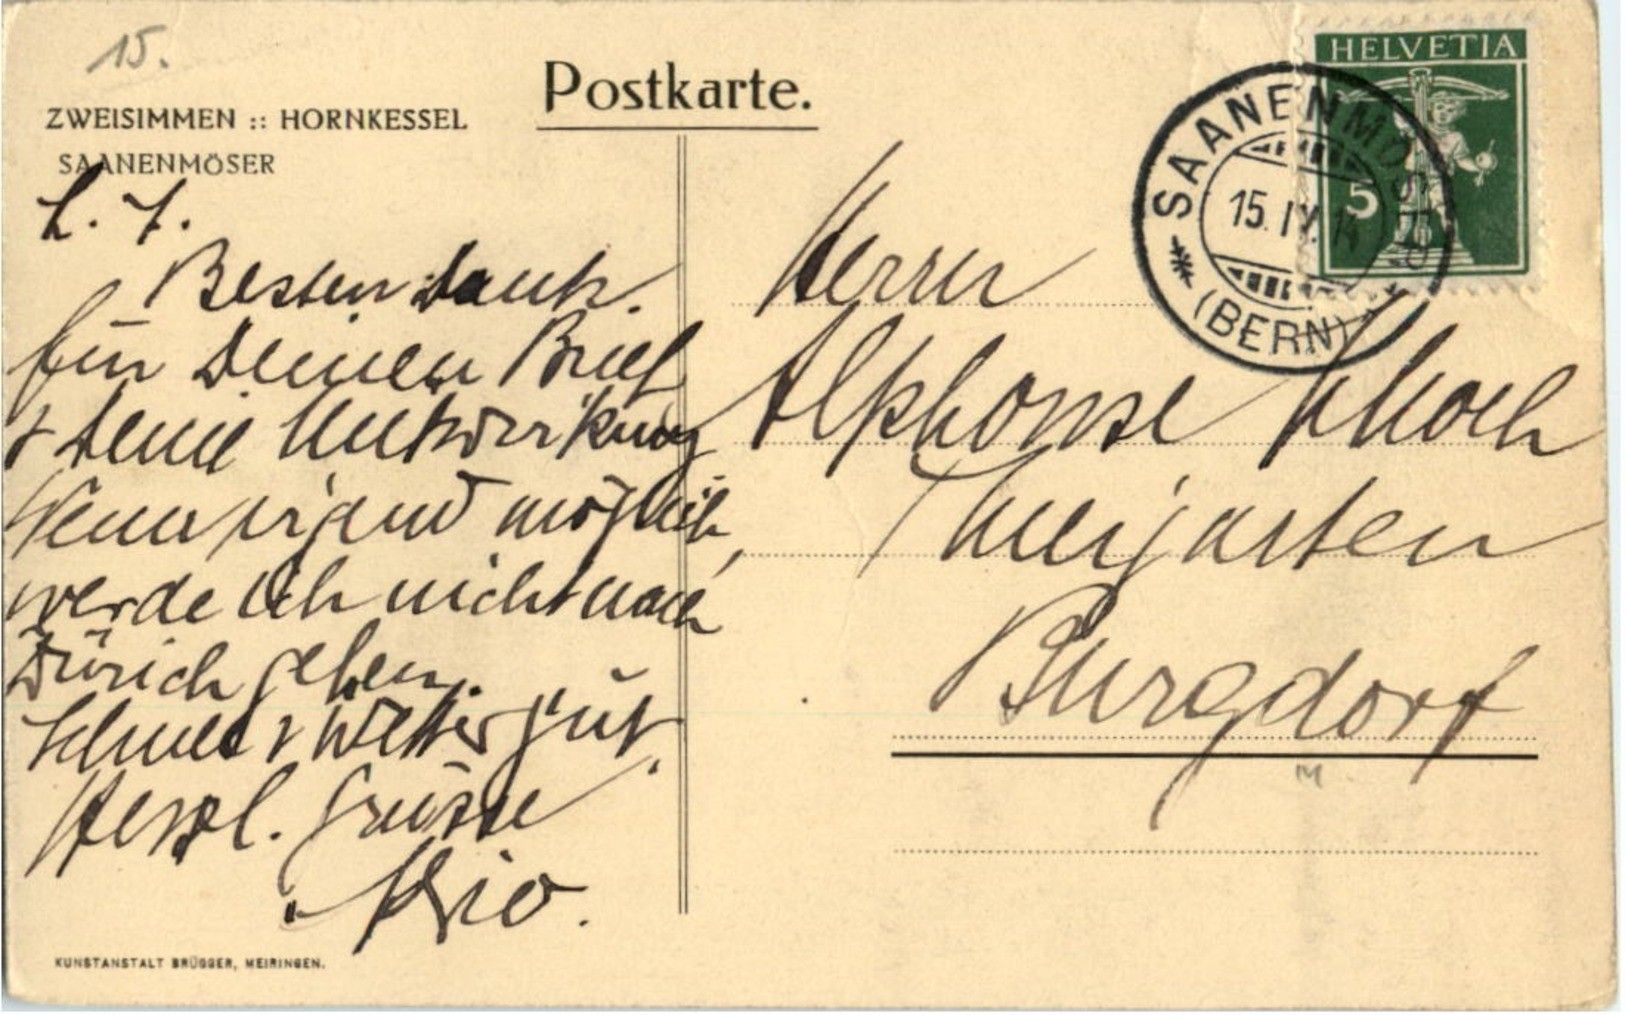 15.
ZWEISIMMEN :: HORNKESSEL
SAANENMÖSER
Postkarte.
HELVETIA
5
SAANENMÖSER
15. IV. 14
(BERN)
L. F.
Besten Dank
für Deinen Brief
& Deine Mitwirkung
Wenn irgend möglich,
werde ich nicht nach
Zürich gehen.
Schnee & Wetter gut.
Herzl. Grüsse
Herrn
Alphonse
Burgdorf
KUNSTANSTALT BRÜGGER, MEIRINGEN.